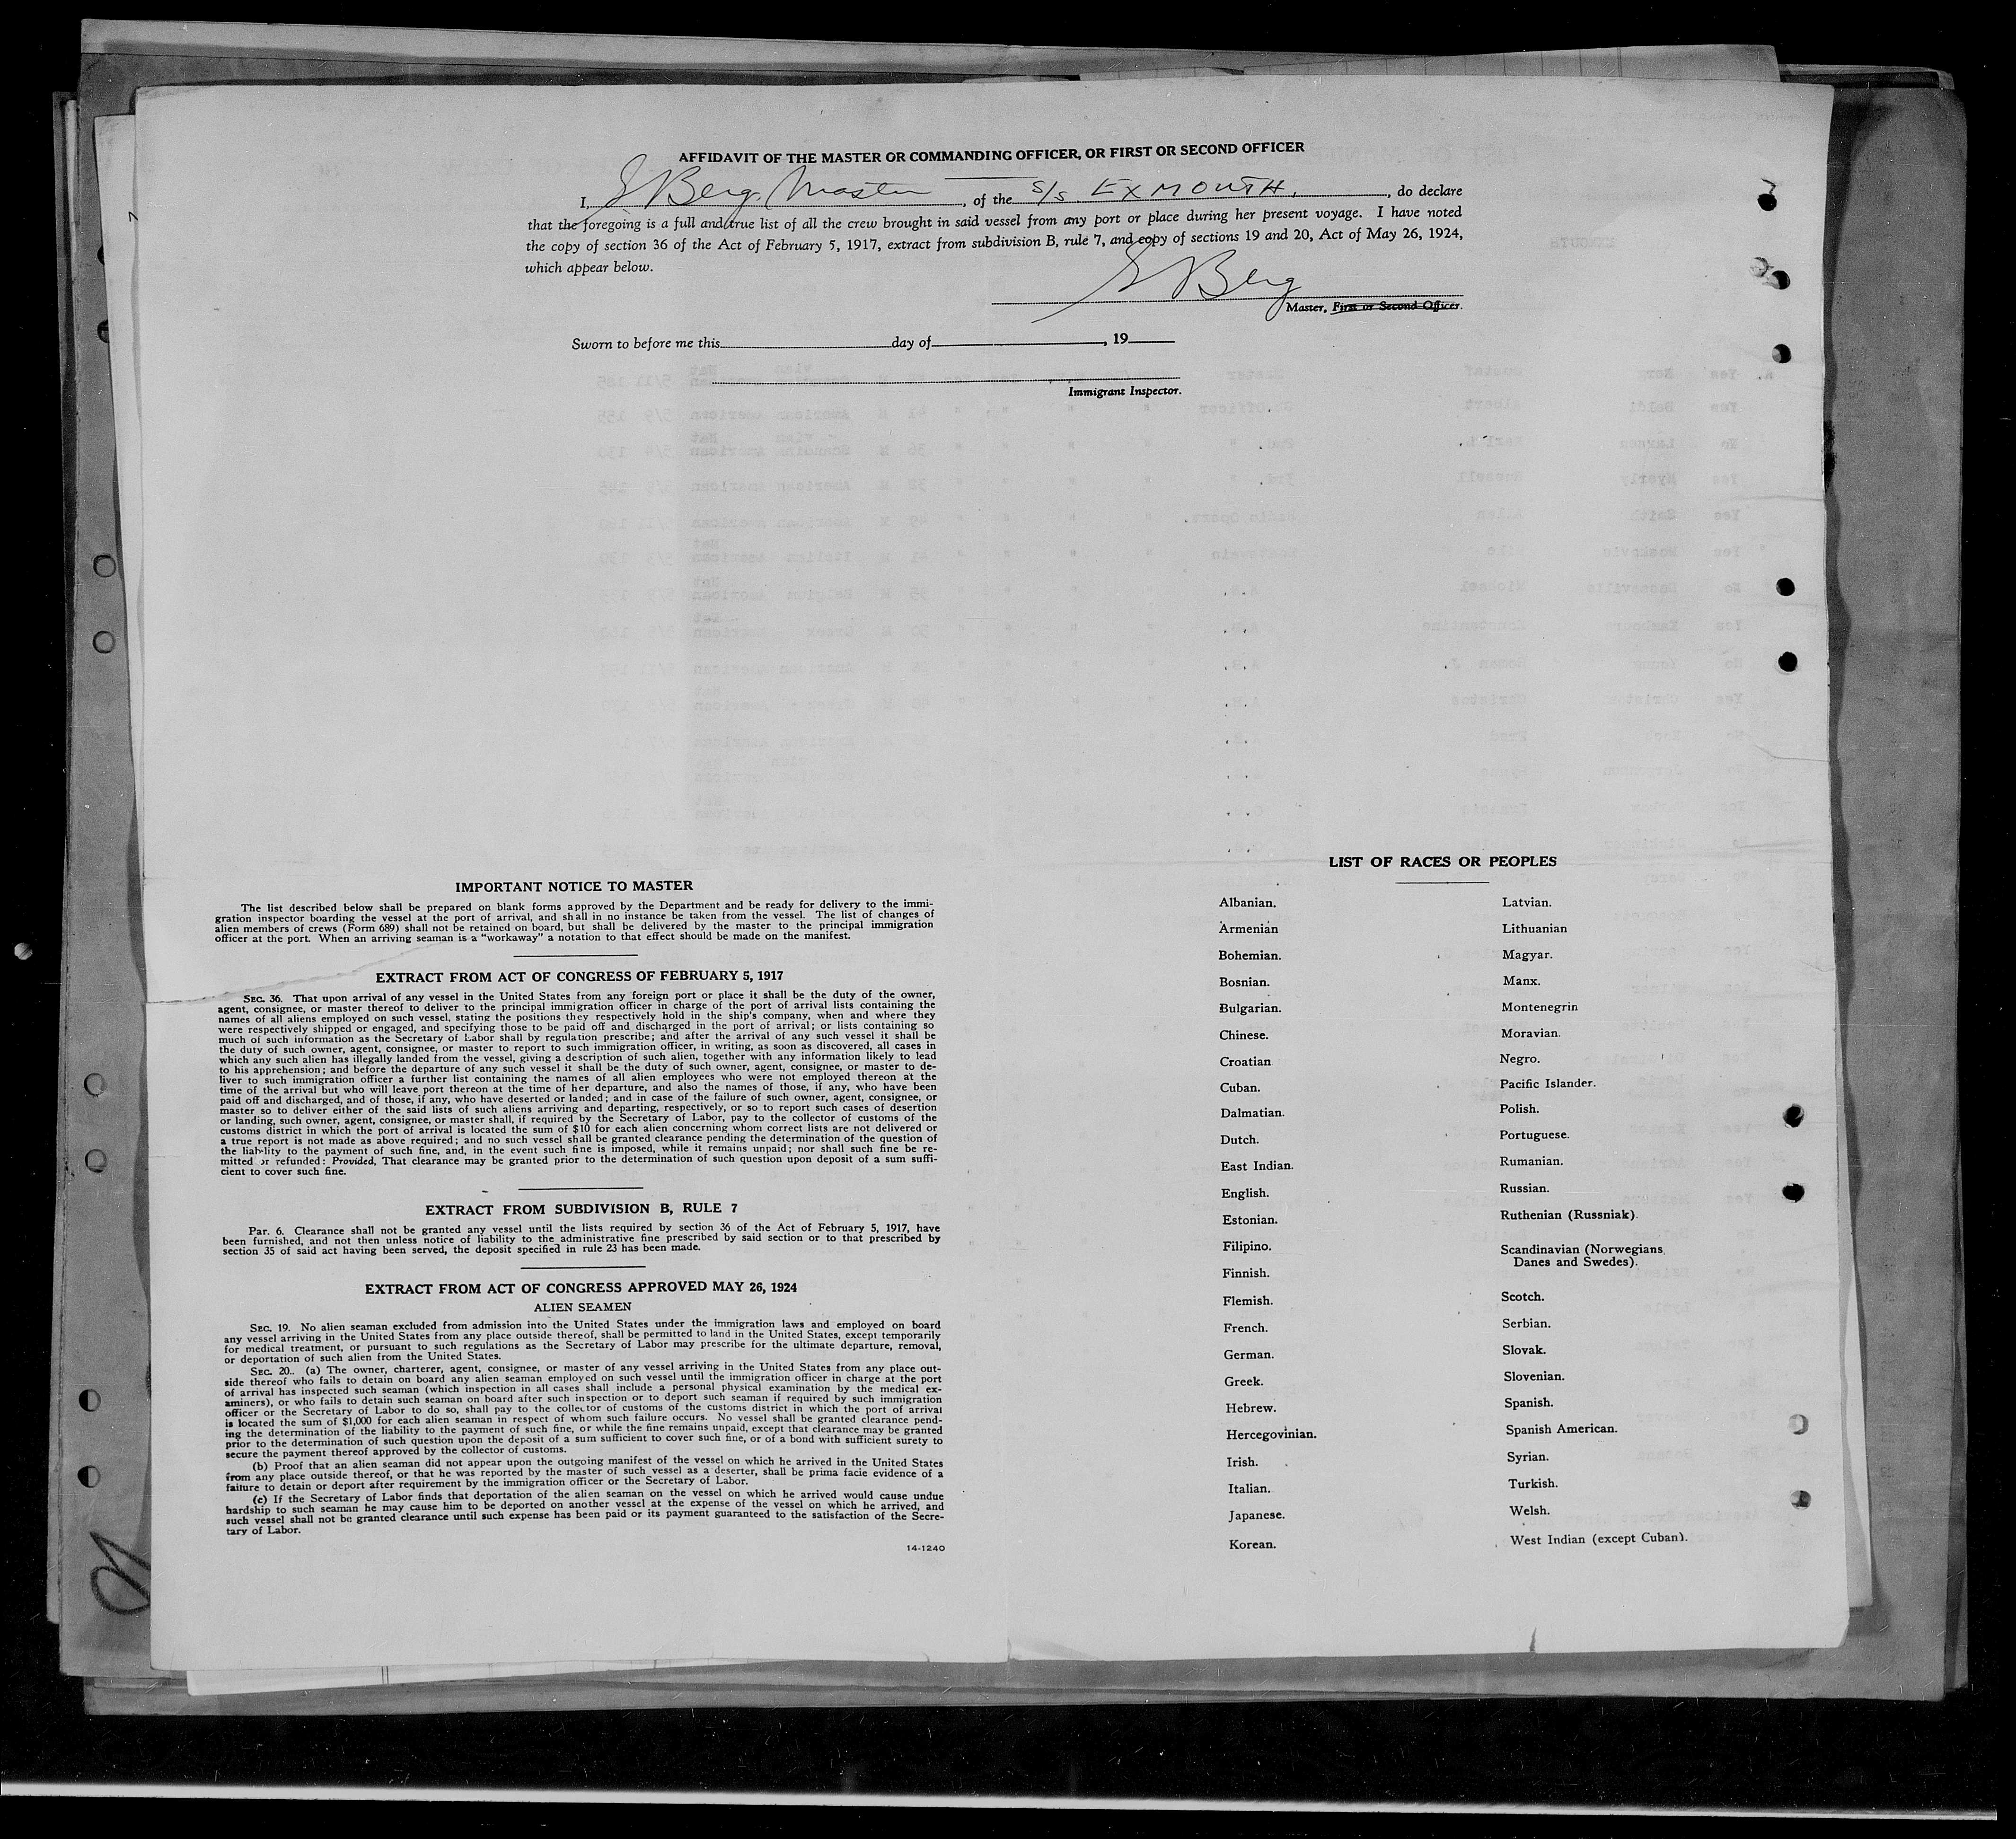 AFFIDAVIT OF THE MASTER OR COMMANDING OFFICER, OR FIRST OR SECOND OFFICER
I, Berg, Master, of the S/S EXMOUTH., do declare
that the foregoing is a full and true list of all the crew brought in said vessel from any port or place during her present voyage. I have noted
the copy of section 36 of the Act of February 5, 1917, extract from subdivision B, rule 7, and copy of sections 19 and 20, Act of May 26, 1924,
which appear below.
Berg
Master, First or Second Officer.
Sworn to before me this day of , 19
Immigrant Inspector.
IMPORTANT NOTICE TO MASTER
The list described below shall be prepared on blank forms approved by the Department and be ready for delivery to the immi-
gration inspector boarding the vessel at the port of arrival, and shall in no instance be taken from the vessel. The list of changes of
alien members of crews (Form 689) shall not be retained on board, but shall be delivered by the master to the principal immigration
officer at the port. When an arriving seaman is a “workaway” a notation to that effect should be made on the manifest.
EXTRACT FROM ACT OF CONGRESS OF FEBRUARY 5, 1917
SEC. 36. That upon arrival of any vessel in the United States from any foreign port or place it shall be the duty of the owner,
agent, consignee, or master thereof to deliver to the principal immigration officer in charge of the port of arrival lists containing the
names of all aliens employed on such vessel, stating the positions they respectively hold in the ship's company, when and where they
were respectively shipped or engaged, and specifying those to be paid off and discharged in the port of arrival; or lists containing so
much of such information as the Secretary of Labor shall by regulation prescribe; and after the arrival of any such vessel it shall be
the duty of such owner, agent, consignee, or master to report to such immigration officer, in writing, as soon as discovered, all cases in
which any such alien has illegally landed from the vessel, giving a description of such alien, together with any information likely to lead
to his apprehension; and before the departure of any such vessel it shall be the duty of such owner, agent, consignee, or master to de-
liver to such immigration officer a further list containing the names of all alien employees who were not employed thereon at the
time of the arrival but who will leave port thereon at the time of her departure, and also the names of those, if any, who have been
paid off and discharged, and of those, if any, who have deserted or landed; and in case of the failure of such owner, agent, consignee, or
master so to deliver either of the said lists of such aliens arriving and departing, respectively, or so to report such cases of desertion
or landing, such owner, agent, consignee, or master shall, if required by the Secretary of Labor, pay to the collector of customs of the
customs district in which the port of arrival is located the sum of $10 for each alien concerning whom correct lists are not delivered or
a true report is not made as above required; and no such vessel shall be granted clearance pending the determination of the question of
the liability to the payment of such fine, and, in the event such fine is imposed, while it remains unpaid; nor shall such fine be re-
mitted or refunded: Provided, That clearance may be granted prior to the determination of such question upon deposit of a sum suffi-
cient to cover such fine.
EXTRACT FROM SUBDIVISION B, RULE 7
Par. 6. Clearance shall not be granted any vessel until the lists required by section 36 of the Act of February 5, 1917, have
been furnished, and not then unless notice of liability to the administrative fine prescribed by said section or to that prescribed by
section 35 of said act having been served, the deposit specified in rule 23 has been made.
EXTRACT FROM ACT OF CONGRESS APPROVED MAY 26, 1924
ALIEN SEAMEN
SEC. 19. No alien seaman excluded from admission into the United States under the immigration laws and employed on board
any vessel arriving in the United States from any place outside thereof, shall be permitted to land in the United States, except temporarily
for medical treatment, or pursuant to such regulations as the Secretary of Labor may prescribe for the ultimate departure, removal,
or deportation of such alien from the United States.
SEC. 20.. (a) The owner, charterer, agent, consignee, or master of any vessel arriving in the United States from any place out-
side thereof who fails to detain on board any alien seaman employed on such vessel until the immigration officer in charge at the port
of arrival has inspected such seaman (which inspection in all cases shall include a personal physical examination by the medical ex-
aminers), or who fails to detain such seaman on board after such inspection or to deport such seaman if required by such immigration
officer or the Secretary of Labor to do so, shall pay to the collector of customs of the customs district in which the port of arrival
is located the sum of $1,000 for each alien seaman in respect of whom such failure occurs. No vessel shall be granted clearance pend-
ing the determination of the liability to the payment of such fine, or while the fine remains unpaid, except that clearance may be granted
prior to the determination of such question upon the deposit of a sum sufficient to cover such fine, or of a bond with sufficient surety to
secure the payment thereof approved by the collector of customs.
(b) Proof that an alien seaman did not appear upon the outgoing manifest of the vessel on which he arrived in the United States
from any place outside thereof, or that he was reported by the master of such vessel as a deserter, shall be prima facie evidence of a
failure to detain or deport after requirement by the immigration officer or the Secretary of Labor.
(c) If the Secretary of Labor finds that deportation of the alien seaman on the vessel on which he arrived would cause undue
hardship to such seaman he may cause him to be deported on another vessel at the expense of the vessel on which he arrived, and
such vessel shall not be granted clearance until such expense has been paid or its payment guaranteed to the satisfaction of the Secre-
tary of Labor.
14-1240
LIST OF RACES OR PEOPLES
Albanian.
Armenian
Bohemian.
Bosnian.
Bulgarian.
Chinese.
Croatian
Cuban.
Dalmatian.
Dutch.
East Indian.
English.
Estonian.
Filipino.
Finnish.
Flemish.
French.
German.
Greek.
Hebrew.
Hercegovinian.
Irish.
Italian.
Japanese.
Korean.
Latvian.
Lithuanian
Magyar.
Manx.
Montenegrin
Moravian.
Negro.
Pacific Islander.
Polish.
Portuguese.
Rumanian.
Russian.
Ruthenian (Russniak).
Scandinavian (Norwegians,
Danes and Swedes).
Scotch.
Serbian.
Slovak.
Slovenian.
Spanish.
Spanish American.
Syrian.
Turkish.
Welsh.
West Indian (except Cuban).